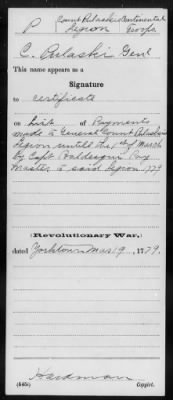 P Count Pulaski's Continental
Legion Troops
C. Pulaski Genl
This name appears as a
Signature
to certificate
on List of Payments
made to General Count Pulaski's
Legion untill the 1st of March
by Capt Baldesqui Pay
Master to said Legion 1779
(Revolutionary War,)
dated Yorktown Mar 19, 1779.
Hardman
(545) Copyist.